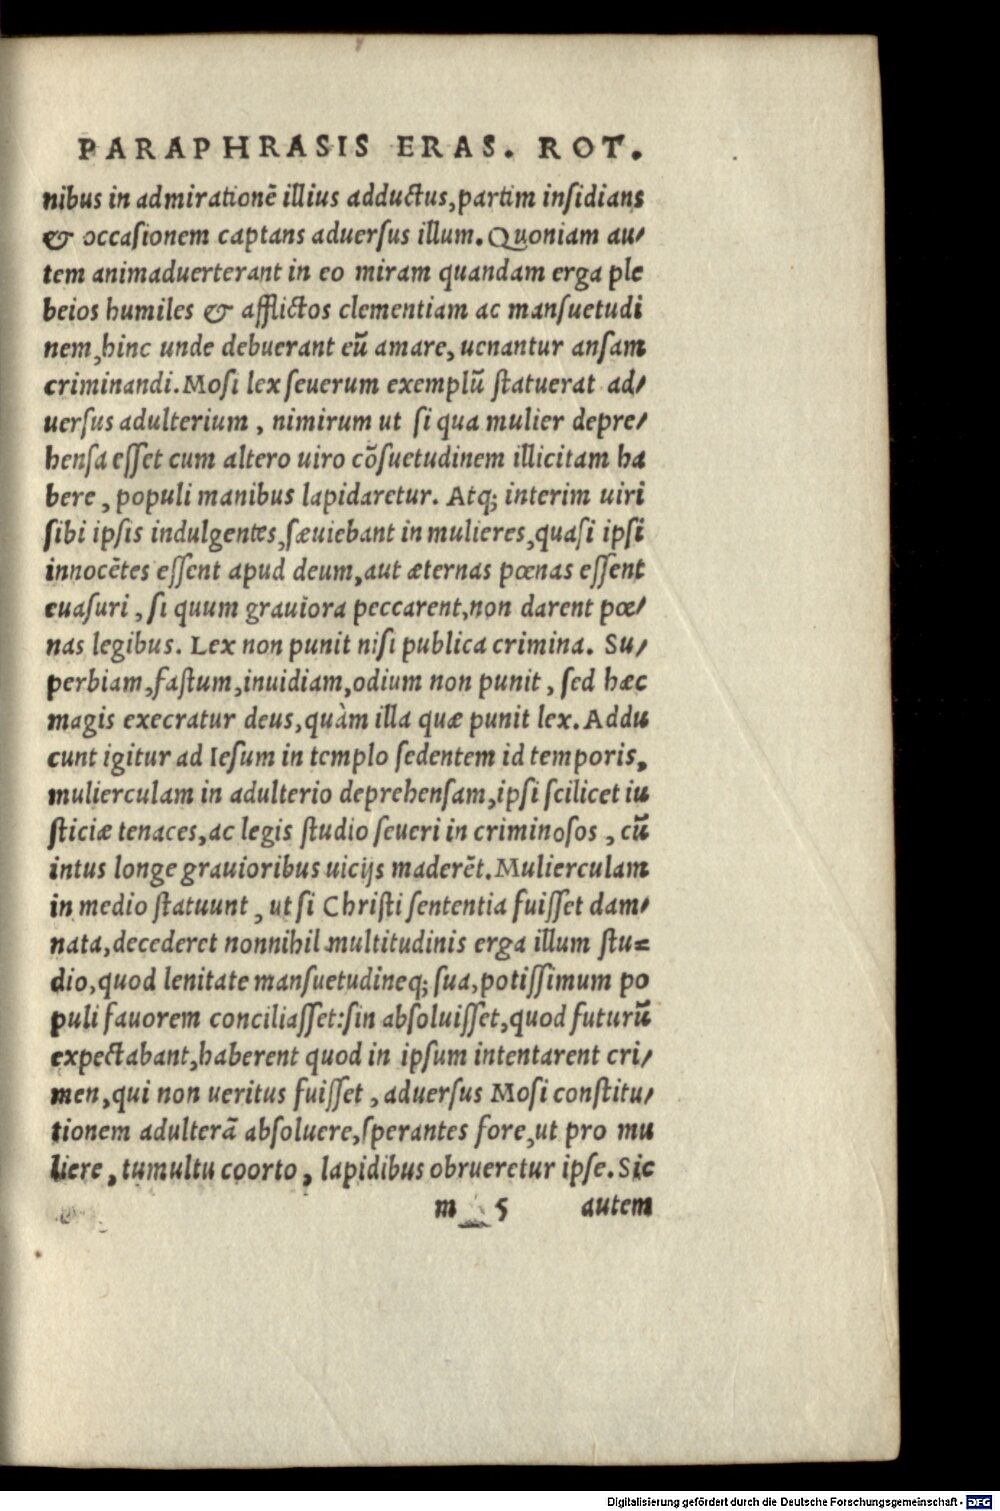 PARAPHRASIS ERAS. ROT.
nibus in admirationẽ illius adductus, partim insidians
& occasionem captans aduersus illum. Quoniam au/
tem animaduerterant in eo miram quandam erga ple
beios humiles & afflictos clementiam ac mansuetudi
nem, hinc unde debuerant eũ amare, uenantur ansam
criminandi. Mosi lex seuerum exemplũ statuerat ad/
uersus adulterium, nimirum ut si qua mulier depre/
hensa esset cum altero uiro cõsuetudinem illicitam ha
bere, populi manibus lapidaretur. Atq; interim uiri
sibi ipsis indulgentes, sæuiebant in mulieres, quasi ipsi
innocẽtes essent apud deum, aut æternas pœnas essent
euasuri, si quum grauiora peccarent, non darent pœ/
nas legibus. Lex non punit nisi publica crimina. Su/
perbiam, fastum, inuidiam, odium non punit, sed hæc
magis execratur deus, quàm illa quæ punit lex. Addu
cunt igitur ad Iesum in templo sedentem id temporis,
mulierculam in adulterio deprehensam, ipsi scilicet iu
sticiæ tenaces, ac legis studio seueri in criminosos, cũ
intus longe grauioribus uicijs maderẽt. Mulierculam
in medio statuunt, ut si Christi sententia fuisset dam/
nata, decederet nonnihil multitudinis erga illum stu=
dio, quod lenitate mansuetudineq; sua, potissimum po
puli fauorem conciliasset: sin absoluisset, quod futurũ
expectabant, haberent quod in ipsum intentarent cri/
men, qui non ueritus fuisset, aduersus Mosi constitu/
tionem adulterã absoluere, sperantes fore, ut pro mu
liere, tumultu coorto, lapidibus obrueretur ipse. Sic
m 5 autem
Digitalisierung gefördert durch die Deutsche Forschungsgemeinschaft - DFG